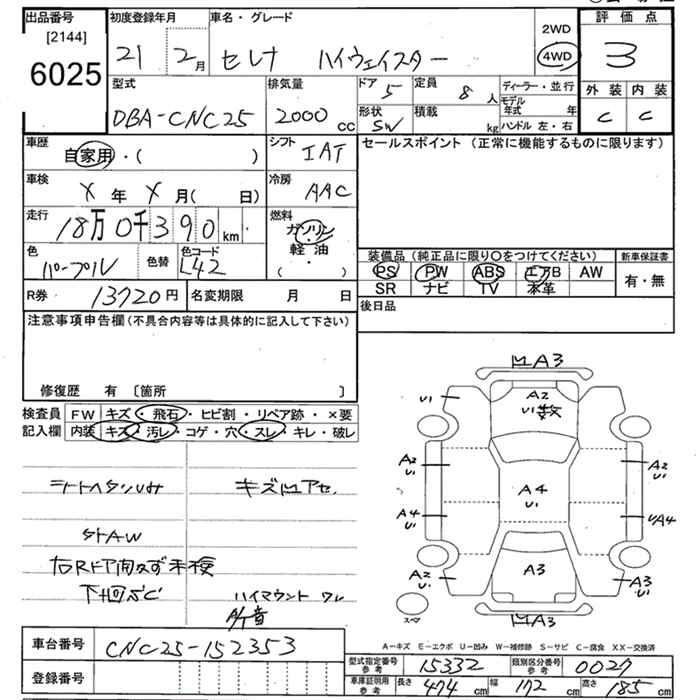 出品番号
[2144]
6025
初度登録年月
21 2月
車名・グレード
セレナ ハイウェイスター
2WD
4WD
評価点
3
外装 内装
C C
型式
DBA-CNC25
排気量
2000 cc
ドア 5
形状 SW
定員 8 人
積載 kg
ディーラー・並行
モデル年式 年
ハンドル 左・右
車歴
自家用・( )
シフト
IAT
セールスポイント (正常に機能するものに限ります)
車検
X 年 X 月( 日)
冷房
AAC
走行
18万0千390km
燃料
ガソリン
軽油
・( )
色
パープル
色替
色コード
L42
装備品 (純正品に限り○をつけてください)
新車保証書
PS PW ABS エアB AW
SR ナビ TV 本革
有・無
R券 13720円
名変期限 月 日
後日品
注意事項申告欄(不具合内容等は具体的に記入して下さい)
修復歴 有 〔箇所 〕
検査員記入欄
FW キズ・飛石・ヒビ割・リペア跡・×要
内装 キズ・汚レ・コゲ・穴・スレ・キレ・破レ
シートヘタリUM
キズ凹アセ
StAW
右Rドア開かず未検
下回SC
ハイマウント ワレ
凹A3
U1
A2
U1数
A2
U1
A2
U1
A4
U1
A4
U1
U1A4
A2
U1
A3
A3
U1
スペア
凹A3
車台番号
CNC25-152353
登録番号
A-キズ E-エクボ U-凹み W-補修跡 S-サビ C-腐食 XX-交換済
型式指定番号 参考 15332
類別区分番号 参考 0027
車庫証明用 参考
長さ 474 cm
幅 172 cm
高さ 185 cm